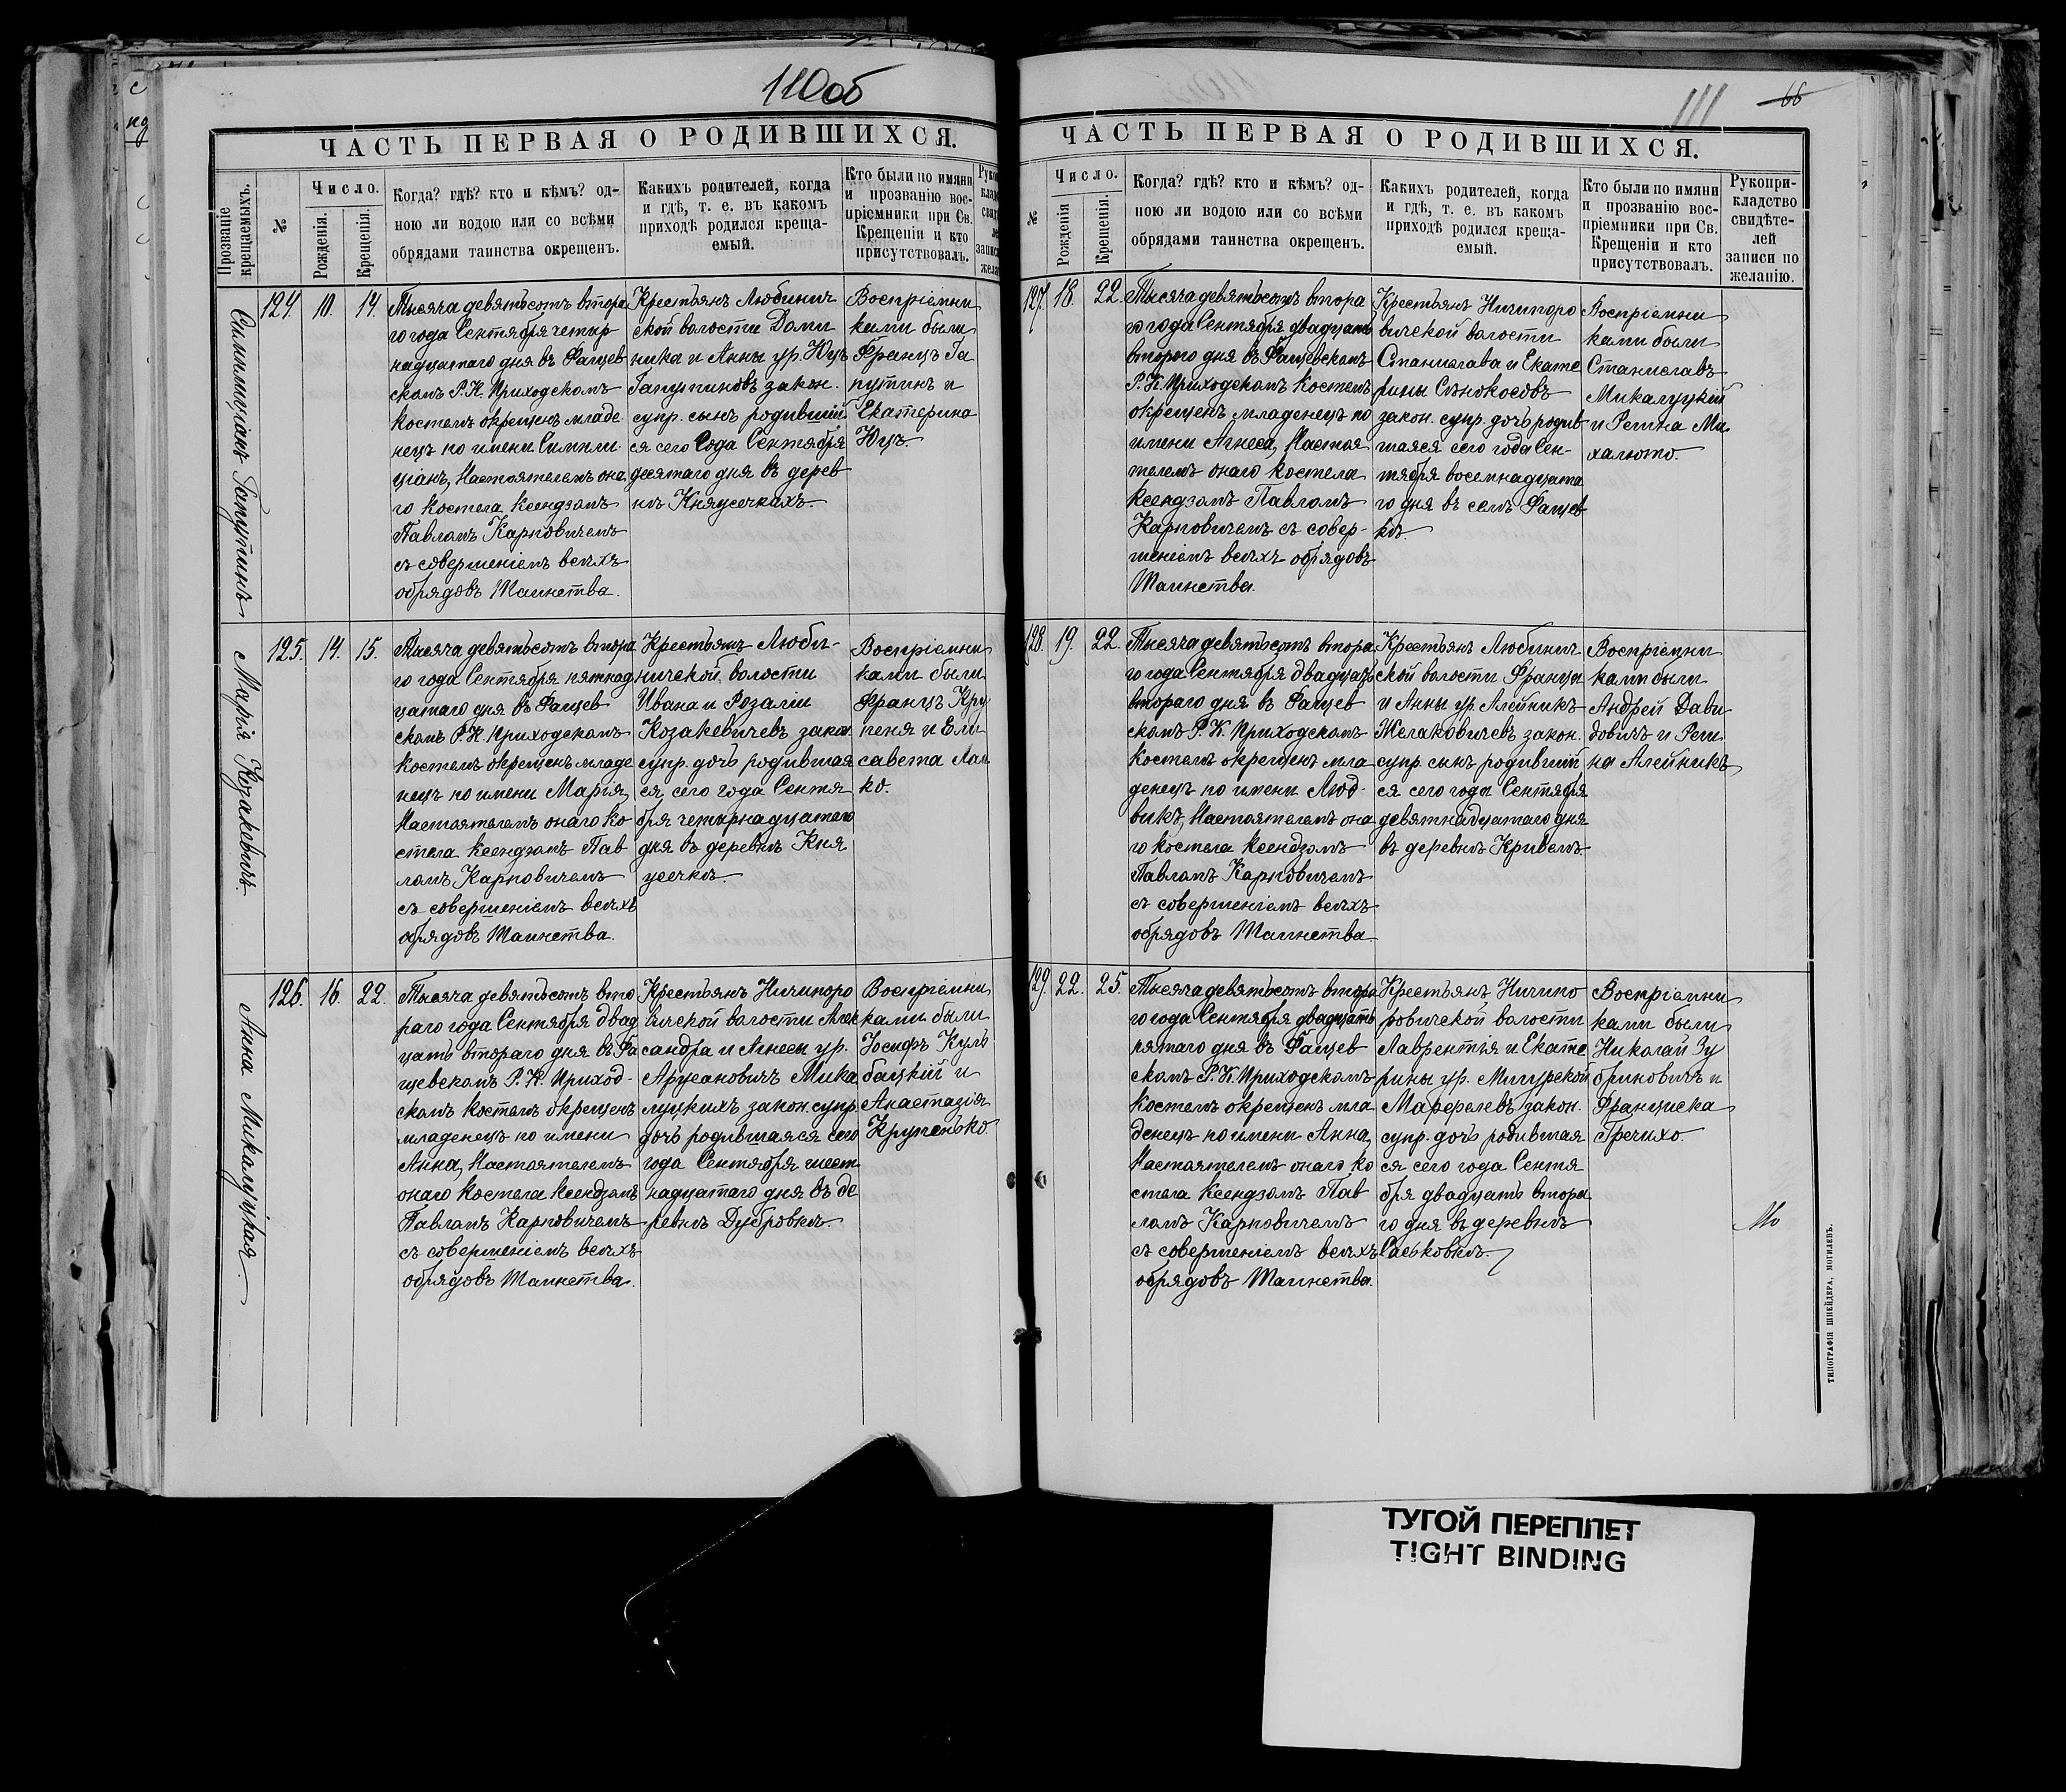 110об
ЧАСТЬ ПЕРВАЯ О РОДИВШИХСЯ.
Прозваніе крещаемыхъ.
№
Число.
Рожденія.
Крещенія.
Когда? гдѣ? кто и кѣмъ? од-
ною ли водою или со всѣми
обрядами таинства окрещенъ.
Какихъ родителей, когда
и гдѣ, т. е. въ какомъ
приходѣ родился креща-
емый.
Кто были по имяни
и прозванію вос-
пріемники при Св.
Крещеніи и кто
присутствовалъ.
Симплиціанъ Гапутинъ
124.
10.
14.
Тысяча девятьсотъ втора
го года Сентября четыр
надцатаго дня въ Фащев
скомъ Р. К. Приходскомъ
костелѣ окрещенъ младе
нецъ по имени Симпли-
ціанъ, Настоятелемъ она
го костела Ксендзомъ
Павломъ Карповичемъ
съ совершеніемъ всѣхъ
обрядовъ Таинства.
Крестьянъ Любинич
ской волости Доми
ника и Анны ур. Юцъ
Гапутиновъ закон.
супр. сынъ родившій
ся сего года Сентября
десятаго дня въ дерев
нѣ Княусечкахъ.
Воспріемни
ками были
Францъ Га
путинъ и
Екатерина
Юцъ.
Марія Козакевичъ.
125.
14.
15.
Тысяча девятьсотъ втора
го года Сентября пятнад
цатаго дня въ Фащев
скомъ Р. К. Приходскомъ
костелѣ окрещенъ младе
нецъ по имени Марія,
Настоятелемъ онаго ко
стела Ксендзомъ Пав
ломъ Карповичемъ
съ совершеніемъ всѣхъ
обрядовъ Таинства.
Крестьянъ Люби-
ничской волости
Ивана и Розаліи
Козакевичевъ закон.
супр. дочь родившая
ся сего года Сентя
бря четырнадцатаго
дня въ деревнѣ Кня
усечкѣ.
Воспріемни
ками были
Францъ Кру
пеня и Ели
савета
ко.
Анна Микалуцкая.
126.
16.
22.
Тысяча девятьсотъ вто
раго года Сентября двад
цать втораго дня въ Фа
щевскомъ Р. К. Приход-
скомъ костелѣ окрещенъ
младенецъ по имени
Анна, Настоятелемъ
онаго костела Ксендзомъ
Павломъ Карповичемъ
съ совершеніемъ всѣхъ
обрядовъ Таинства.
Крестьянъ Ничипоро
вичской волости Алек
сандра и Агнесы ур.
Арцсановичъ Мика
луцкихъ закон. супр.
дочь родившаяся сего
года Сентября шест
надцатаго дня въ де
ревнѣ Дубровкѣ.
Воспріемни
ками были
Іосифъ Куль
бацкій и
Анастазія
Крупенько.
111
66
ЧАСТЬ ПЕРВАЯ О РОДИВШИХСЯ.
№
Число.
Рожденія
Крещенія.
Когда? гдѣ? кто и кѣмъ? од-
ною ли водою или со всѣми
обрядами таинства окрещенъ.
Какихъ родителей, когда
и гдѣ, т. е. въ какомъ
приходѣ родился креща-
емый.
Кто были по имяни
и прозванію вос-
пріемники при Св.
Крещеніи и кто
присутствовалъ.
Рукопри-
кладство
свидѣте-
лей
записи по
желанію.
127.
18.
22.
Тысяча девятьсотъ втора
го года Сентября двадцать
второго дня въ Фащевскомъ
Р. К. Приходскомъ Костелѣ
окрещенъ младенецъ по
имени Агнеса, Настоя
телемъ онаго костела
Ксендзомъ Павломъ
Карповичемъ съ совер-
шеніемъ всѣхъ обрядовъ
Таинства.
Крестьянъ Ничипоро
вичской волости
Станислава и Екате
рины Сѣнокосовъ
закон. супр. дочь родив
шаяся сего года Сен-
тября восемнадцата
го дня въ селѣ Фащев
кѣ.
Воспріемни
ками были
Станиславъ
Микалуцкій
и Регина Ми
халюто.
128.
19.
22.
Тысяча девятьсотъ втора
го года Сентября двадцать
втораго дня въ Фащев
скомъ Р. К. Приходскомъ
костелѣ окрещенъ мла
денецъ по имени Люд-
викъ, Настоятелемъ она
го костела Ксендзомъ
Павломъ Карповичемъ
съ совершеніемъ всѣхъ
обрядовъ Таинства
Крестьянъ Любинич
ской волости Франца
и Анны ур. Алейникъ
Желаковичевъ закон.
супр. сынъ родившій
ся сего года Сентября
девятнадцатаго дня
въ деревнѣ Кривелъ
Воспріемни
ками были
Андрей Дави
довичъ и Реги-
на Алейникъ
129.
22.
25.
Тысяча девятьсотъ втора
го года Сентября двадцать
пятаго дня въ Фащев
скомъ Р. К. Приходскомъ
костелѣ окрещенъ мла
денецъ по имени Анна,
Настоятелемъ онаго ко
стела Ксендзомъ Пав
ломъ Карповичемъ
съ совершеніемъ всѣхъ
обрядовъ Таинства.
Крестьянъ Ничипо
ровичской волости
Лаврентья и Екате
рины ур. Мигурской
закон.
супр. дочь родившая
ся сего года Сентя
бря двадцать втора
го дня въ деревнѣ
Саськовкѣ.
Воспріемни
ками были
Николай Зу
бриновичъ и
Франциска
Гречихо.
ТИПОГРАФІЯ ШНЕЙДЕРА, МОГИЛЕВЪ.
ТУГОЙ ПЕРЕПЛЕТ
TIGHT BINDING